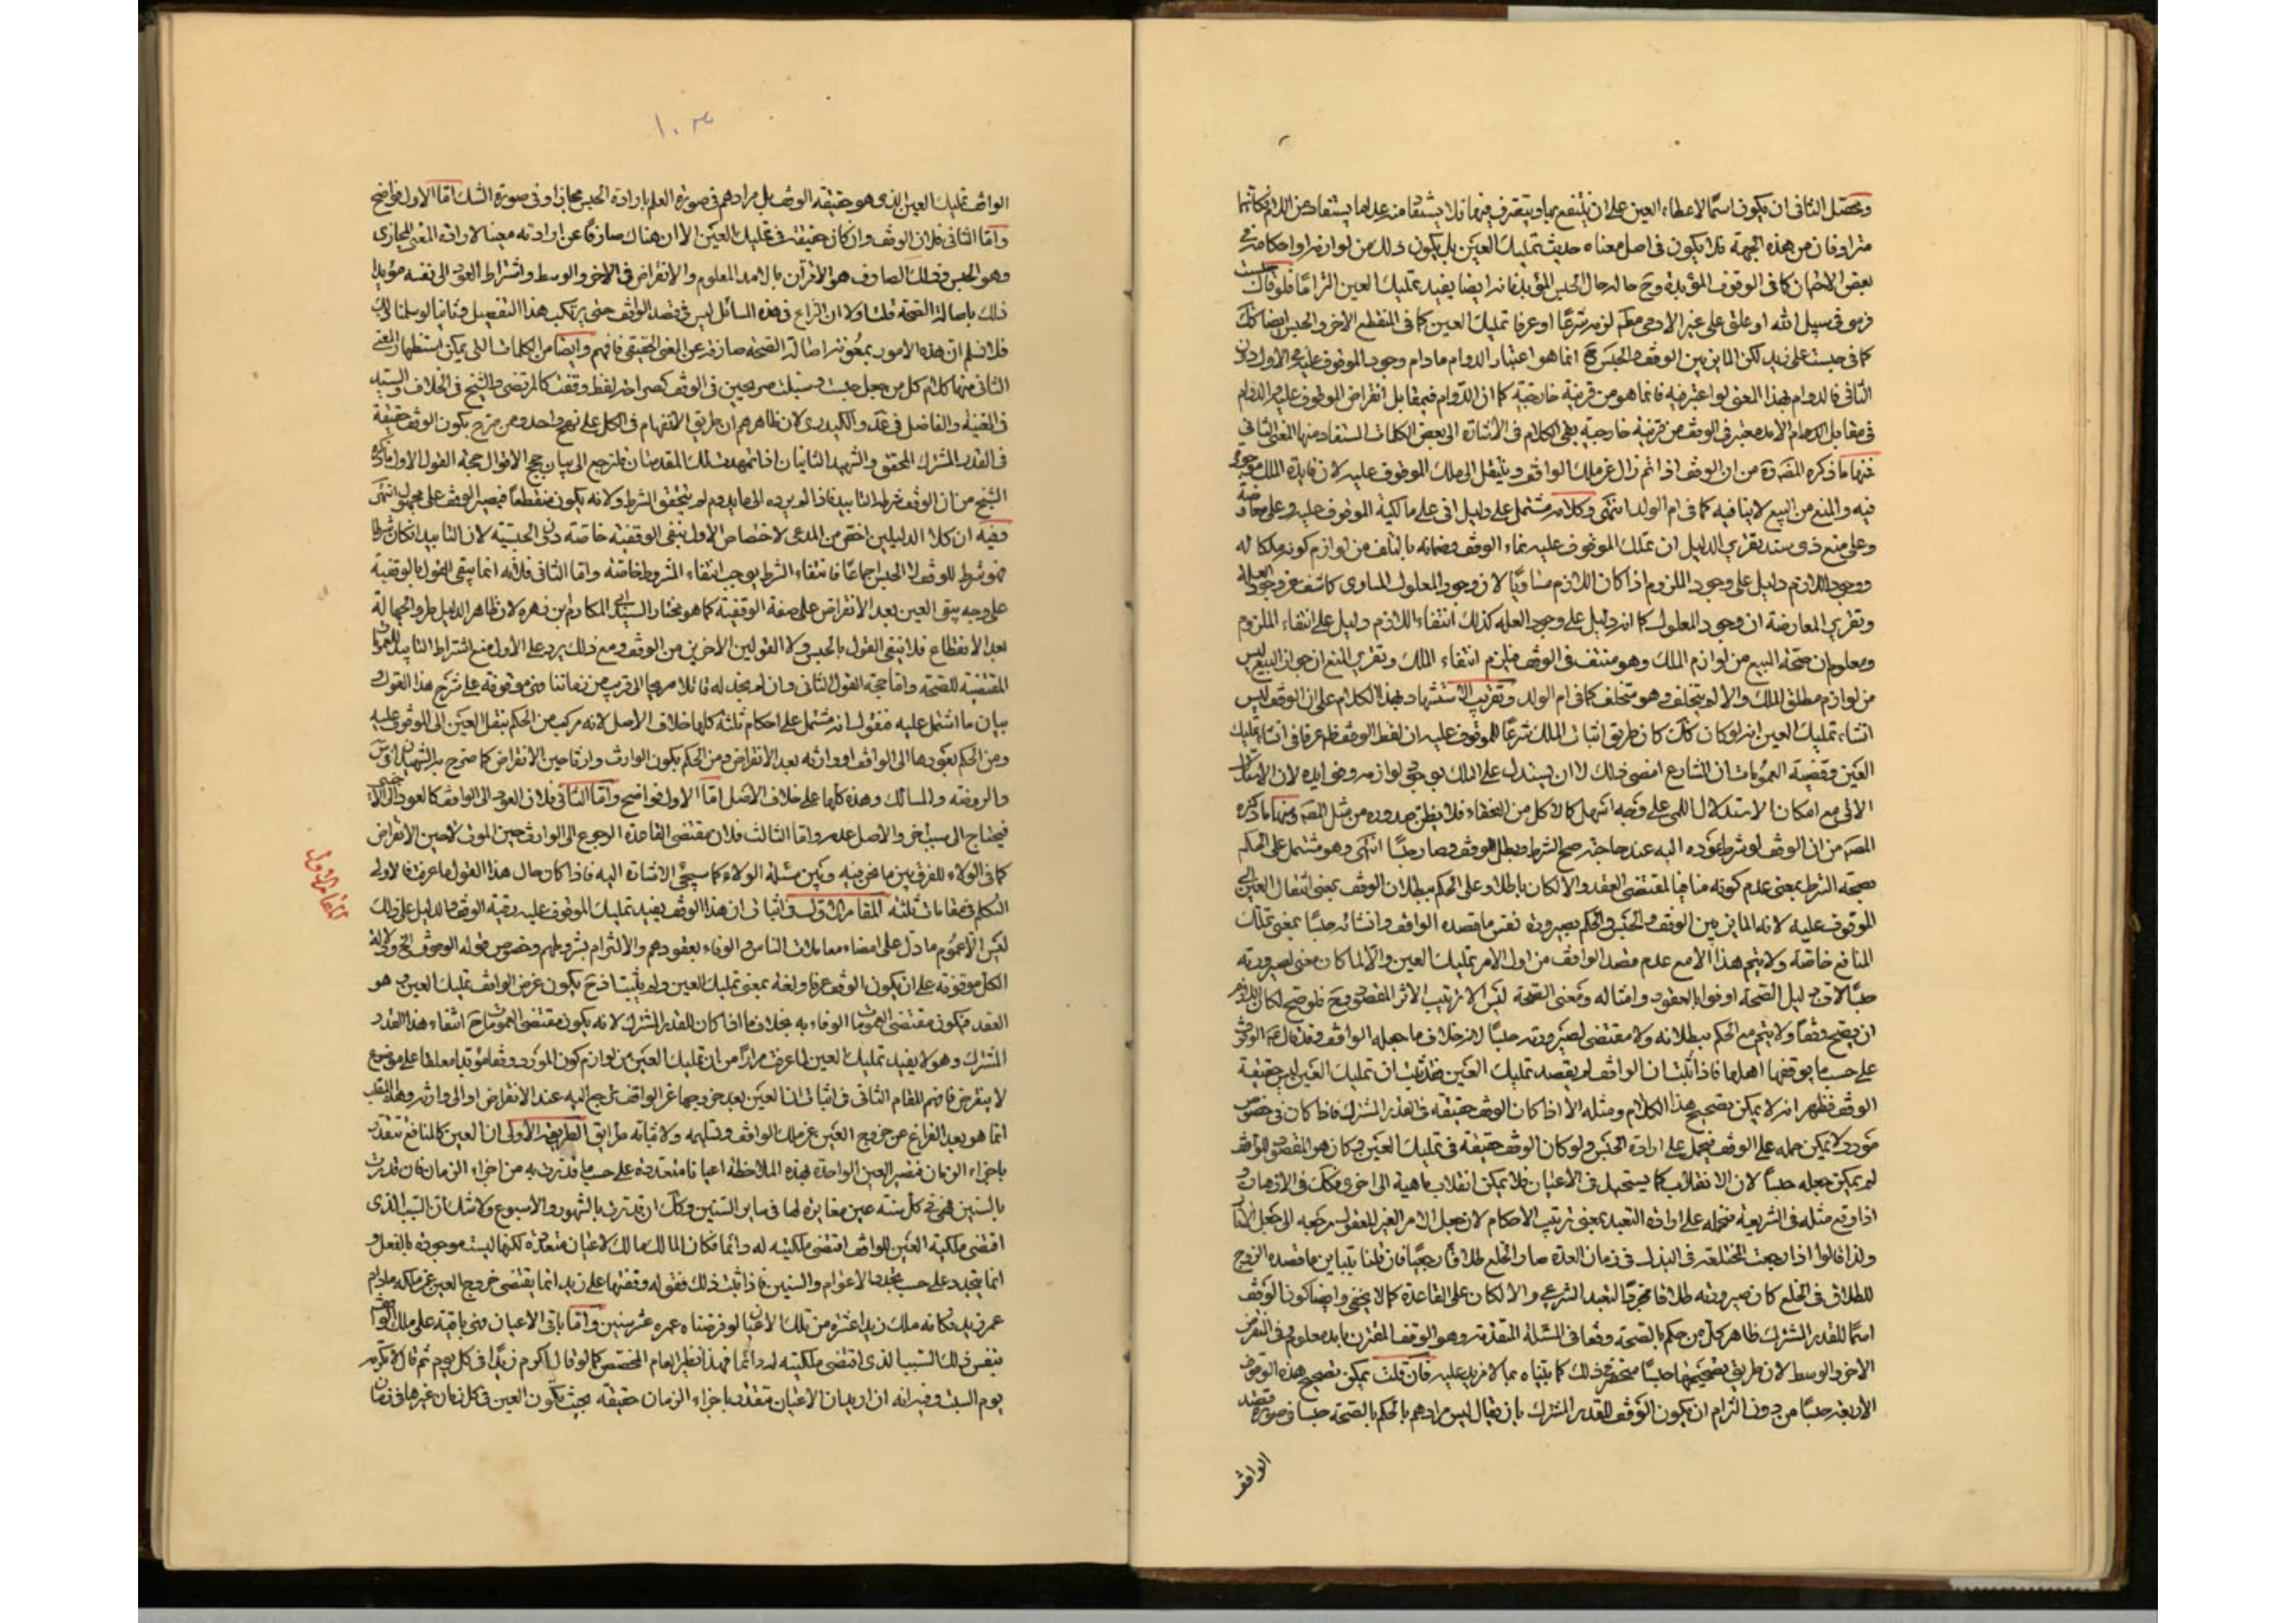 ومحصل الثانى ان يكون اسمًا لاعطاء العين على ان ينتفع بها ويتصرف فيها فلا يستفاد منه عدا ما يستفاد من اللام فكانهما
مترادفان من هذه الجهة فلا يكون فى اصل معناه حديث تمليك العين بل يكون ذلك من لوازمه واحكامه فى
بعض الاحيان كما فى الوقوف المؤبدة وح حاله حال الحبس المؤبد فانه ايضا يفيد تمليك العين التزامًا فلو قال حبست
فرسى فى سبيل الله او علق على غير الادمى لزم شرعًا او عرفا تمليك العين كما فى المنقطع الاخر والحبس ايضا كك
كما فى حبست على زيد لكن المايز بين الوقف والحبس ح انما هو اعتبار الدوام مادام وجود الموقوف عليه فى الاول دون
الثانى فالدوام بهذا المعنى لو اعتبر فيه فانما هو من قرينة خارجية كما ان الدوام فيما يقابل انقراض الموقوف عليه والدوام
فى مقابل الامد معتبر فى الوقف من قرينة خارجية بقى الكلام فى الاشارة الى بعض الكلمات المستفاد منها المعنى الثانى
فمنها ما ذكره المص ره من ان الوقف اذا تم زال عن ملك الواقف وينتقل الى ملك الموقوف عليه لان فايدة الملك موجودة
فيه والمنع من البيع لا ينافيه كما فى ام الولد انتهى وكلامه مشتمل على دليل انى على مالكية الموقوف عليه وعلى معارضة
وعلى منع ذى سند تقرير الدليل ان تملك الموقوف عليه نماء الوقف وضمانه بالتلف من لوازم كونه ملكا له
ووجود اللازم دليل على وجود الملزوم اذا كان اللازم مساويًا لان وجود المعلول المساوى كاشف عن وجود العلة
وتقرير المعارضة ان وجود المعلول كما انه دليل على وجود العلة كذلك انتفاء اللازم دليل على انتفاء الملزوم
ومعلوم ان صحة البيع من لوازم الملك وهو منتف فى الوقف فيلزم انتفاء الملك وتقرير المنع ان جواز البيع ليس
من لوازم مطلق الملك والا لم يتخلف وهو متخلف كما فى ام الولد وتقريب الاستشهاد بهذا الكلام على ان الوقف ليس
انشاء تمليك العين انه لو كان كك كان طريق اثبات الملك شرعًا للموقوف عليه ان لفظ الوقف ظاهر عرفا فى انشاء تمليك
العين وقضية العمومات ان الشارع امضى ذلك لا ان يستدل على الملك بوجود لوازمه وفوايده لان الاستدلال
الانى مع امكان الاستدلال اللمى على وجه اسهل كالاكل من القفاء فلا يظن صدوره من مثل المص ومنها ما ذكره
المص من ان الوقف لو شرط عوده اليه عند حاجته صح الشرط وبطل الوقف وصار حبسًا انتهى وهو مشتمل على الحكم
بصحة الشرط بمعنى عدم كونه منافيا لمقتضى العقد والا لكان باطلا وعلى الحكم ببطلان الوقف بمعنى انتقال العين الى
الموقوف عليه لانه المايز بين الوقف والحبس والحكم بصيرورته نفس ما قصده الواقف وانشائه حبسًا بمعنى تملك
المنافع خاصة ولا يتم هذا الا مع عدم قصد الواقف من اول الامر تمليك العين والا لما كان معنى لصيرورته
حبسًا لان دليل الصحة اوفوا بالعقود وامثاله ومعنى الصحة ليس الا ترتيب الاثر المقصود وح فلو صح لكان اللازم
ان يصح وقفًا ولا يتم مع الحكم ببطلانه ولا مقتضى لصيرورته حبسًا لانه خلاف ما جعله الواقف وقد قال ع الوقوف
على حسب ما يوقفها اهلها فاذا ثبت ان الواقف لم يقصد تمليك العين فقد ثبت ان تمليك العين ليس حقيقة
الوقف فظهر انه لا يمكن تصحيح هذا الكلام ومثله الا اذا كان الوقف حقيقة فى القدر المشترك فاذا كان فى خصوص
مورد لا يمكن حمله على الوقف فيحمل على ارادة الحبس ولو كان الوقف حقيقة فى تمليك العين وكان هو المقصود للواقف
لم يمكن جعله حبسًا لان الانقلاب كما يستحيل فى الاعيان فلا يمكن انقلاب ماهية الى اخرى فكك فى الازمان و
اذا وقع مثله فى الشريعة فنحمله على ارادة التعبد بمعنى ترتيب الاحكام لان جعل الامر الغير المعقول مرجعه الى جعل الاثار
ولذا قالوا اذا رجعت المختلعة فى البذل فى زمان العدة صار الخلع طلاقًا رجعيًا فان قلنا بتباين ما قصده الزوج
للطلاق فى الخلع كان صيرورته طلاقا بمجرد التعبد الشرعى والا لكان على القاعدة كما لا يخفى وايضا كون الوقف
اسمًا للقدر المشترك ظاهر كل من حكم بالصحة وقفا فى المسئلة المتقدمة وهو الوقف المقترن بامد معلوم وفى المنقرض
الاخر والوسط لان طريق تصحيحها حبسًا منحصر فى ذلك كما بيناه بما لا مزيد عليه فان قلت يمكن تصحيح هذه الوقوف
الاربعة حبسًا من دون التزام ان يكون الوقف للقدر المشترك بان يقال ليس مرادهم بالحكم بالصحة حبسا فى صورة قصد
الواقف
١٠٣
الواقف تمليك العين الذى هو حقيقة الوقف بل مرادهم فى صورة العلم بارادة الحبس مجازا وفى صورة الشك اما الاول فواضح
واما الثانى فلان الوقف وان كان حقيقة فى تمليك العين الا ان هناك صارفًا عن ارادته معينا لارادة المعنى المجازى
وهو الحبس وذلك الصارف هو الاقتران بالامد المعلوم والانقراض فى الاخر والوسط واشتراط العود الى نفسه مؤيدا
ذلك باصالة الصحة قلت اولا ان النزاع فى هذه المسائل ليس فى قصد الواقف حتى يرتكب هذا التفصيل وثانيا لو سلمنا ذلك
فلا نسلم ان هذه الامور بمعونة اصالة الصحة صارفة عن المعنى الحقيقى فافهم وايضا من الكلمات التى يمكن استظهار المعنى
الثانى منها كلام كل من جعل حبست وسبلت صريحين فى الوقف كصراحة لفظ وقفت كالمرتضى والشيخ فى الخلاف والسيد
فى الغنية والفاضل فى عد والكيدرى لان ظاهرهم ان طريق الافهام فى الكل على نهج واحد ومن صرح بكون الوقف حقيقة
فى القدر المشترك المحقق والشهيد الثانيان اذا تمهدت تلك المقدمتان فلنرجع الى بيان حجج الاقوال حجة القول الاول ما ذكره
الشيخ من ان الوقف شرطه التابيد فاذا لم يرده الى ما يدوم لم يتحقق الشرط ولانه يكون منقطعًا فيصير الوقف على مجهول انتهى
وفيه ان كلا الدليلين اخص من المدعى لاختصاص الاول بنفى الوقفية خاصة دون الحبسية لان التابيد ان كان شرطا
فهو شرط للوقف لا الحبس اجماعًا فانتفاء الشرط يوجب انتفاء المشروط خاصة واما الثانى فلانه انما ينفى القول بالوقفية
على وجه يبقى العين بعد الانقراض على صفة الوقفية كما هو مختار السيد ابى المكارم بن زهره لان ظاهر الدليل طرو الجهالة
بعد الانقطاع فلا ينفى القول بالحبس ولا القولين الاخرين من الوقف ومع ذلك يرد على الاول منع اشتراط التابيد للعمومات
المقتضية للصحة واما حجة القول الثانى وان لم نجد له قائلا صريحا الى قريب من زماننا فهى موقوفة على شرح هذا القول و
بيان ما اشتمل عليه فنقول انه مشتمل على احكام ثلثة كلها خلاف الاصل لانه مركب من الحكم بنقل العين الى الموقوف عليه
ومن الحكم بعودها الى الواقف او وارثه بعد الانقراض ومن الحكم بكون الوارث وارثا حين الانقراض كما صرح به الشهيدان فى س
والروضة والمسالك وهذه كلها على خلاف الاصل اما الاول فواضح واما الثانى فلان العود الى الواقف كالعود الى الاجنبى
فيحتاج الى سبب اخر والاصل عدمه واما الثالث فلان مقتضى القاعدة الرجوع الى الوارث حين الموت لا حين الانقراض
كما فى الولاء للفرق بين ما نحن فيه وبين مسئلة الولاء كما سيجئ الاشارة اليه فاذا كان حال هذا القول ما عرفت فالاولى
التكلم فى مقامات ثلثه المقام الاول فى اثبات ان هذا الوقف يفيد تمليك الموقوف عليه رقبة الوقف والدليل على ذلك
المقام الاول
ليس الا عموم ما دل على امضاء معاملات الناس والوفاء بعقودهم والالتزام بشروطهم وخصوص قوله الوقوف الخ ودلالة
الكل موقوفة على ان يكون الوقف عرفا ولغة بمعنى تمليك العين ولم يثبت اذ ح يكون غرض الواقف تمليك العين وهو
العقد فيكون مقتضى العمومات الوفاء به بخلاف ما اذا كان للقدر المشترك لانه يكون مقتضى العمومات ح انشاء هذا القدر
المشترك وهو لا يفيد تمليك العين لما عرفت مرارًا من ان تمليك العين من لوازم كون المورد وقفا مؤبدا معلقا على موضوع
لا ينقرض فافهم المقام الثانى فى اثبات ان العين بعد خروجها عن الواقف ترجع اليه عند الانقراض او الى وارثه وهذا البحث
انما هو بعد الفراغ عن خروج العين عن ملك الواقف وتسليمه ولاثباته طرايق الطريق الاولى ان العين كالمنافع تتقدر
باجزاء الزمان فتصير العين الواحدة بهذه الملاحظة اعيانا متعددة على حسب ما قدرت به من اجزاء الزمان فان قدرت
بالسنين فهى فى كل سنة عين مغايرة لها فى ساير السنين وكك ان قدرت بالشهور والاسبوع ولا شك ان السبب الذى
اقتضى ملكية العين للواقف اقتضى ملكيته له دائما فكان المالك مالك لاعيان متعددة لكنها ليست موجودة بالفعل و
انما يتجدد على حسب تجدد الاعوام والسنين فاذا ثبت ذلك فقوله وقفتها على زيد انما يقتضى خروج العين عن ملكه مادام
عمر زيد فكانه ملك زيدا عشرة من تلك الاعيان لو فرضناه عمره عشر سنين واما باقى الاعيان فهى باقية على ملك الواقف
بنفس ذلك السبب الذى اقتضى ملكيته له دائما فهذا نظير العام المخصص كما لو قال اكرم زيدًا فى كل يوم ثم قال لا تكرمه
يوم السبت وفيه انه ان اريد ان الاعيان متقدرة باجزاء الزمان حقيقة بحيث يكون العين فى كل زمان غيرها فى زمان